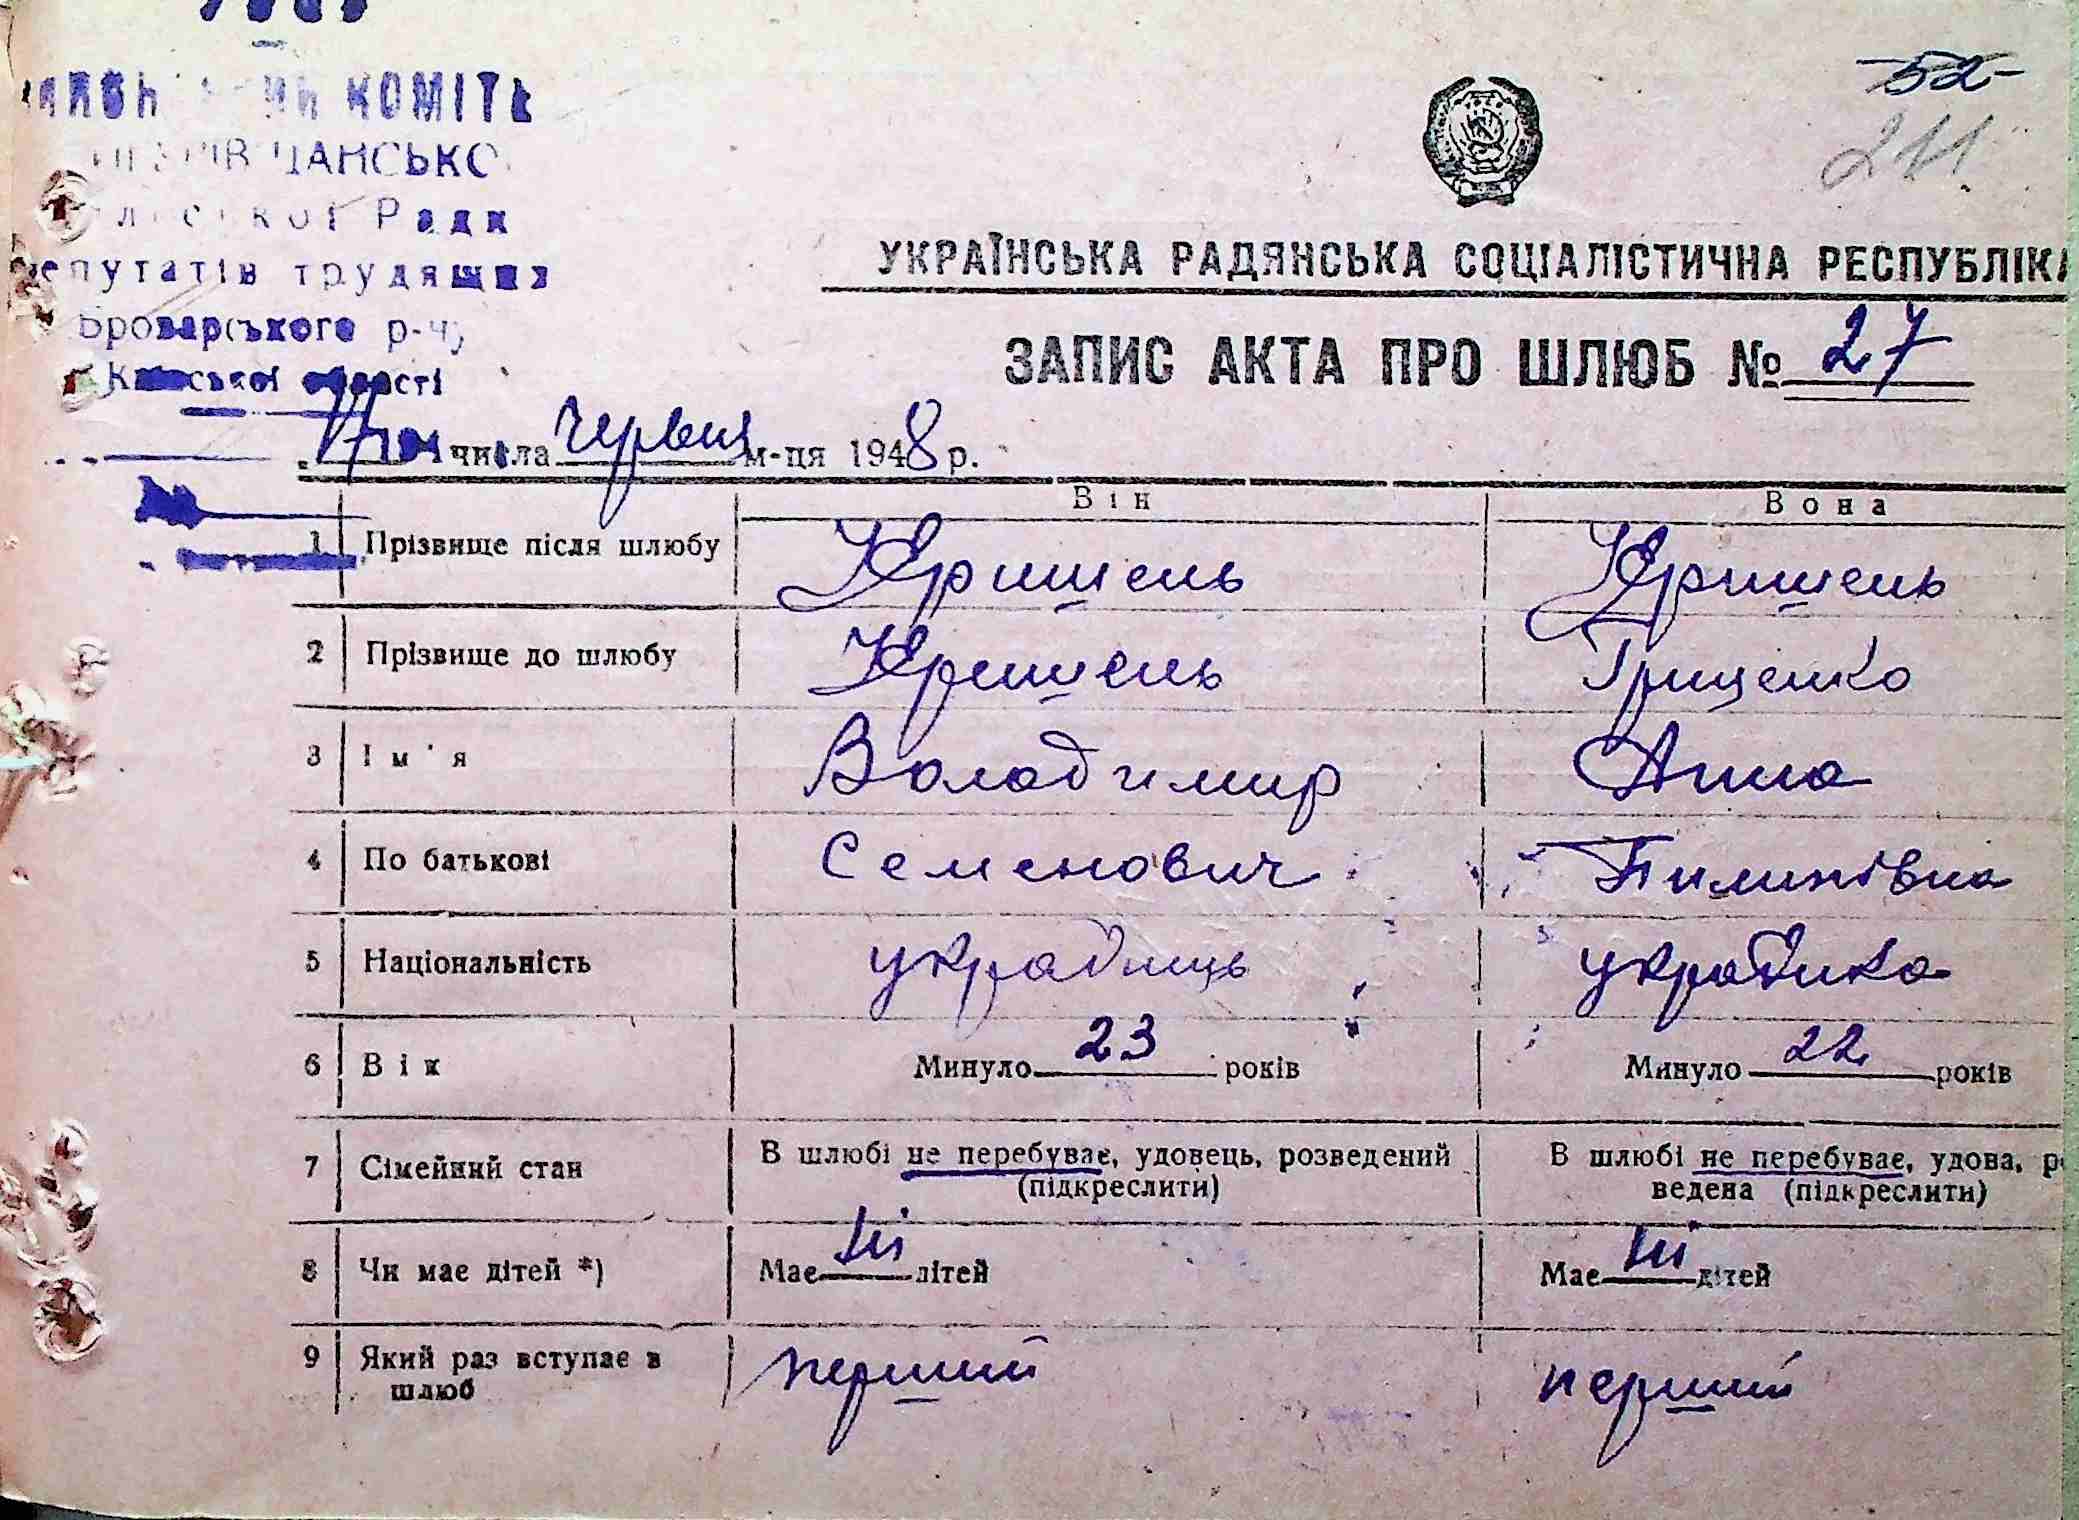 УРСР
КОМІТЕ
Ради
депутатів трудящих
Броварського р-ну
Київської області
52
211
УКРАЇНСЬКА РАДЯНСЬКА СОЦІАЛІСТИЧНА РЕСПУБЛІКА
ЗАПИС АКТА ПРО ШЛЮБ № 27
17 числа червня м-ця 1948 р.
Він Вона
1 Прізвище після шлюбу Кришень Кришень
2 Прізвище до шлюбу Кришень Грищенко
3 Ім'я Володимир Анна
4 По батькові Семенович Пилипівна
5 Національність українець українка
6 Вік Минуло 23 років Минуло 22 років
7 Сімейний стан В шлюбі не перебуває, удовець, розведений (підкреслити) В шлюбі не перебуває, удова, роз
ведена (підкреслити)
8 Чи має дітей *) Має ні дітей Має ні дітей
9 Який раз вступає в шлюб перший перший